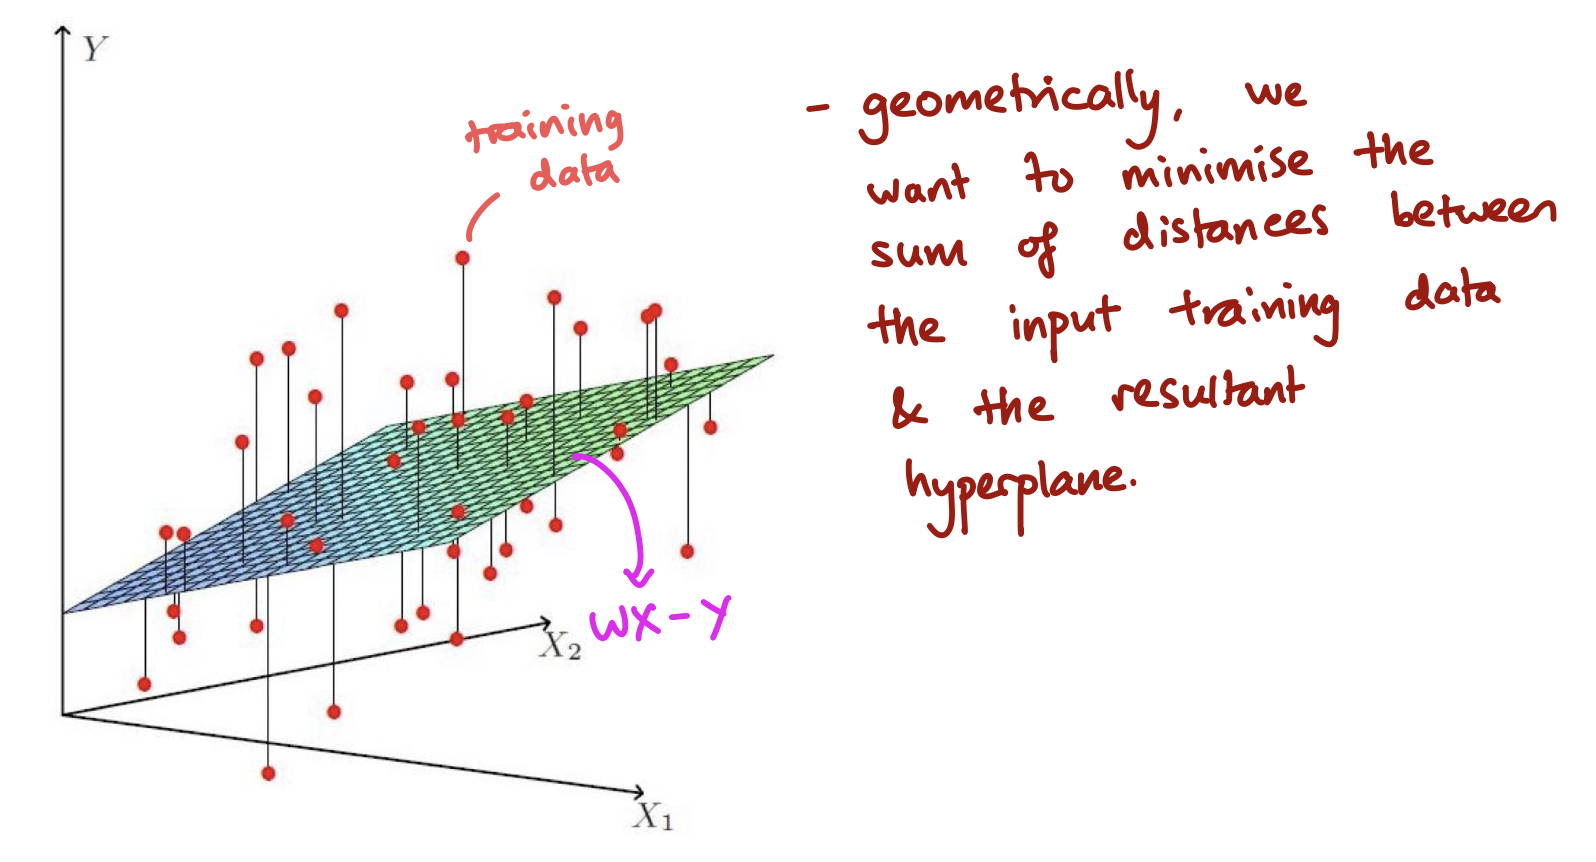 Y
training
data
- geometrically, we
want to minimise the
sum of distances between
the input training data
& the resultant
hyperplane.
WX - Y
X₂
X₁